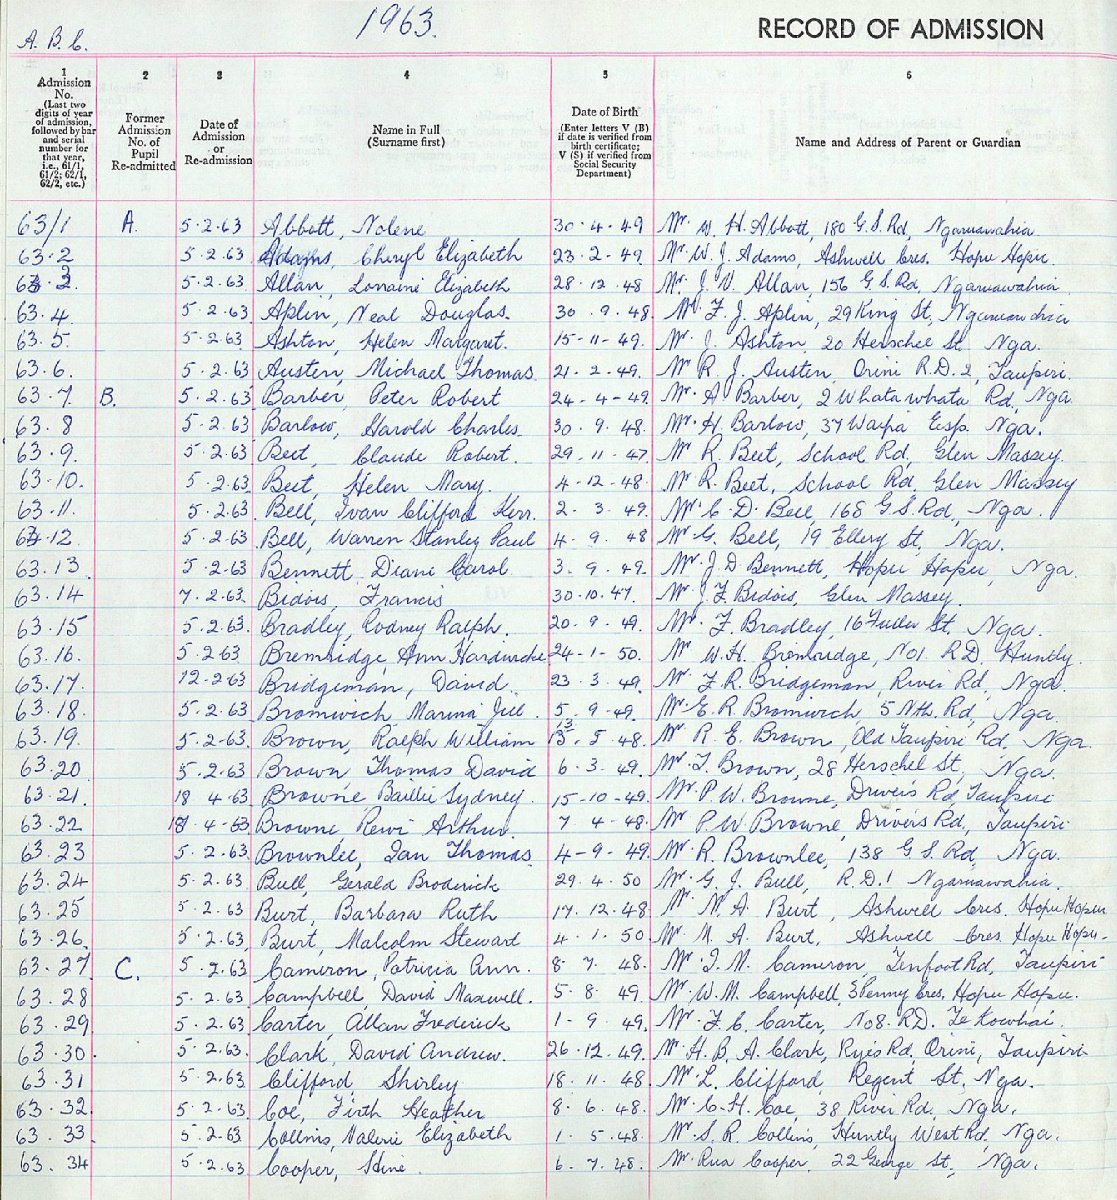 1963.
A. B. C.
RECORD OF ADMISSION
1 2 3 4 5 6
Admission No. (Last two digits of year of admission, followed by bar and serial number for that year, i.e., 61/1, 61/2; 62/1, 62/2, etc.)
Former Admission No. of Pupil Re-admitted
Date of Admission or Re-admission
Name in Full (Surname first)
Date of Birth (Enter letters V (B) if date is verified from birth certificate; V (S) if verified from Social Security Department)
Name and Address of Parent or Guardian
63/1 A. 5.2.63 Abbott, Nolene 30.4.49 Mr. W. H. Abbott, 180 G.S. Rd, Ngaruawahia.
63.2 5.2.63 Adams, Cheryl Elizabeth 23.2.49. Mr. W. J. Adams, Ashwell Cres. Hopu Hopu.
63.3. 5.2.63 Allan, Lorraine Elizabeth 28.12.48 Mr. J. Allan, 156 G.S. Rd, Ngaruawahia.
63.4 5.2.63 Aplin, Neal Douglas. 30.9.48. Mr F. J. Aplin, 29 King St, Ngaruawahia
63.5. 5.2.63 Ashton, Helen Margaret. 15-11-49. Mr. J. Ashton, 20 Herschel St Nga.
63.6. 5.2.63 Austen, Michael Thomas. 21.2.49. Mr R. J. Austen, Orini R.D.2, Taupiri.
63.7 B. 5.2.63 Barber, Peter Robert 24-4-49. Mr. A Barber, 2 Whatawhata Rd, Nga.
63.8 5.2.63 Barlow, Harold Charles. 30.9.48. Mr. H. Barlow, 37 Waipa Esp. Nga.
63.9. 5.2.63 Beet, Claude Robert. 29.11.47 Mr R. Beet, School Rd, Glen Massey.
63.10. 5.2.63 Beet, Helen Mary. 4-12-48. Mr. R. Beet, School Rd, Glen Massey
63.11. 5.2.63. Bell, Ivan Clifford Kerr. 2.3.49. Mr. C. D. Bell, 168 G.S. Rd, Nga.
63.12 5.2.63 Bell, Warren Stanley Paul 4.9.48 Mr. G. Bell, 19 Ellery St, Nga.
63.13 5.2.63 Bennett, Diane Carol 3.9.49. Mr. J. D Bennett, Hopu Hopu, Nga.
63.14 7.2.63 Bidois, Francis 30.10.47. Mr. J. F. Bidois, Glen Massey.
63.15 5.2.63. Bradley, Rodney Ralph. 20.9.49. Mr. F. Bradley, 16 Fuller St. Nga.
63.16. 5.2.63 Bremridge, Ann 24-1-50. Mr. W. H. Bremridge, No1. R.D. Huntly.
63.17. 12.2.63 Bridgeman, David. 23.3.49. Mr. F. R. Bridgeman, River Rd, Nga.
63.18. 5.2.63 Bromwich, Marina Jill. 5.9.49. Mr. E. R Bromwich, 5 Nth. Rd, Nga.
63.19. 5.2.63. Brown, Ralph William 13.5.48. Mr R. E. Brown, Old Taupiri Rd, Nga.
63.20 5.2.63 Brown Thomas David 6.3.49. Mr. T. Brown, 28 Herschel St, Nga.
63.21. 18 4.63 Browne Baillie Sydney. 15-10-49. Mr. P. W. Browne, Drivers Rd, Taupiri
63.22 18.4.63 Browne Rewi Arthur. 7.4.48. Mr P. W Browne, Drivers Rd, Taupiri
63.23 5.2.63. Brownlee, Ian Thomas. 4-9-49. Mr. R. Brownlee, 138 G.S. Rd, Nga.
63.24 5.2.63 Bull, Gerald Broderick 29.4.50 Mr. G. J. Bull, R.D.1 Ngaruawahia.
63.25 5.2.63 Burt, Barbara Ruth 17.12.48. Mr. N. A. Burt, Ashwell Cres. Hopu Hopu
63.26. 5.2.63. Burt, Malcolm Steward 4.1.50. Mr. N. A. Burt, Ashwell Cres. Hopu Hopu.
63.27 C. 5.2.63 Cameron, Patricia Ann. 8.7.48. Mr. I. N. Cameron, Tenfoot Rd, Taupiri
63.28 5.2.63 Campbell, David Maxwell. 5.8.49. Mr. W. M. Campbell, 3 Penny Cres. Hopu Hopu.
63.29 5.2.63 Carter, Allan Frederick 1-9.49. Mr. F. C. Carter, No8. R.D. Te Kowhai.
63.30. 5.2.63. Clark, David Andrew. 26.12.49. Mr. H. B. A. Clark, Ryes Rd, Orini, Taupiri
63.31 5.2.63 Clifford Shirley 18.11.48. Mr. L. Clifford, Regent St, Nga.
63.32. 5.2.63. Coe, Firth Heather 8.6.48. Mr. C. H. Coe, 38 River Rd, Nga.
63.33. 5.2.63 Collins, Valerie Elizabeth 1.5.48. Mr. S. R. Collins, Huntly West Rd, Nga.
63.34 5.2.63. Cooper, Hine. 6.7.48. Mr. Rua Cooper, 22 George St, Nga.